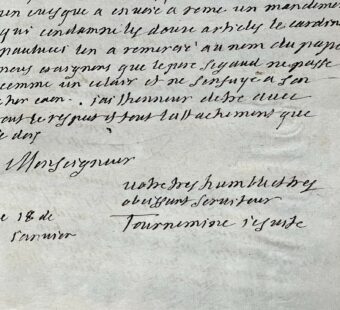 un evesque a envoié a rome un mandement
qui condamne les douze articles le cardin
paulucci len a remercié au nom du pape
nous craignons que le pere segaud ne passe
comme un eclair et ne senfuye a son
cher caen. jai lhonneur detre avec
tout le respect et tout lattachement que
je dois
Monseigneur
votre tres humble et tres
obeissant serviteur
Tournemine jesuite
le 18 de
Janvier